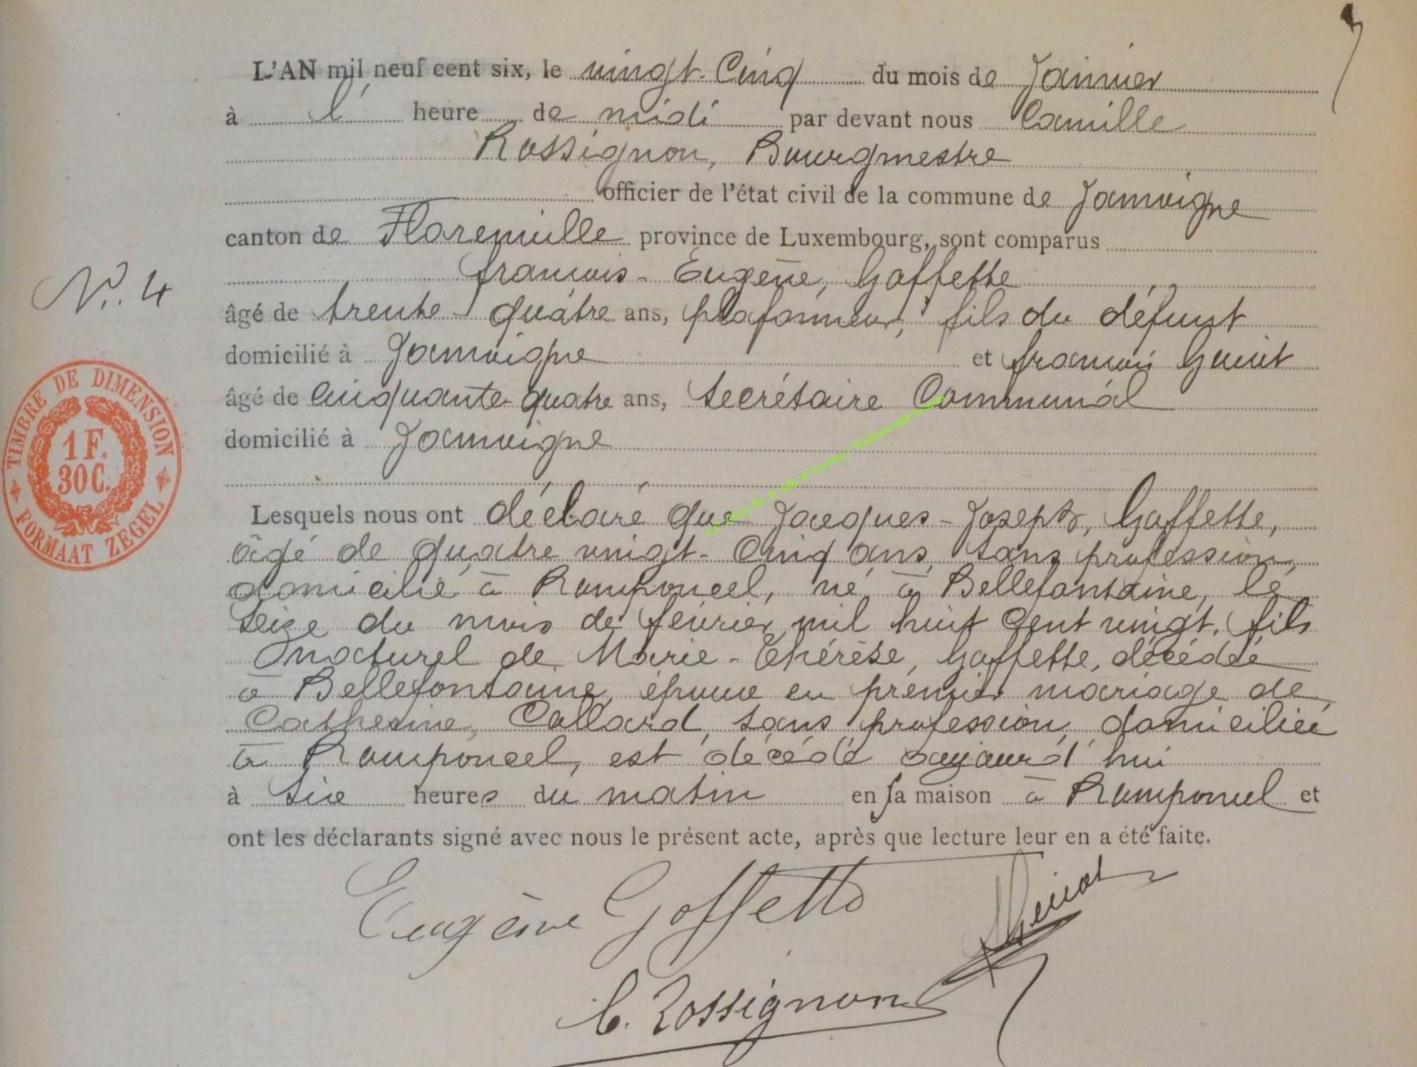 L'AN mil neuf cent six, le vingt-Cinq du mois de Janvier
à l' heure de midi par devant nous Camille
Rossignon, Bourgmestre
officier de l'état civil de la commune de Jamoigne
canton de Florenville province de Luxembourg, sont comparus
francois-Eugène, Goffette
N°. 4
âgé de trente quatre ans, plafonneur, fils du défunt
domicilié à Jamoigne et francois
âgé de cinquante-quatre ans, Secrétaire Communal
domicilié à Jamoigne
TIMBRE DE DIMENSION
1 F.
30 C.
FORMAAT ZEGEL
Lesquels nous ont déclaré que Jacques-Joseph, Goffette,
âgé de quatre vingt-Cinq ans, sans profession,
domicilié à Romponcel, né à Bellefontaine, le
Seize du mois de février mil huit Cent vingt, fils
naturel de Marie-Thérèse, Goffette, décédée
à Bellefontaine, époux en premier mariage de
Catherine, Collard, sans profession, domiciliée
à Romponcel, est décédé aujourd'hui
à six heures du matin en sa maison à Romponcel et
ont les déclarants signé avec nous le présent acte, après que lecture leur en a été faite.
Eugène Goffette
C. Rossignon